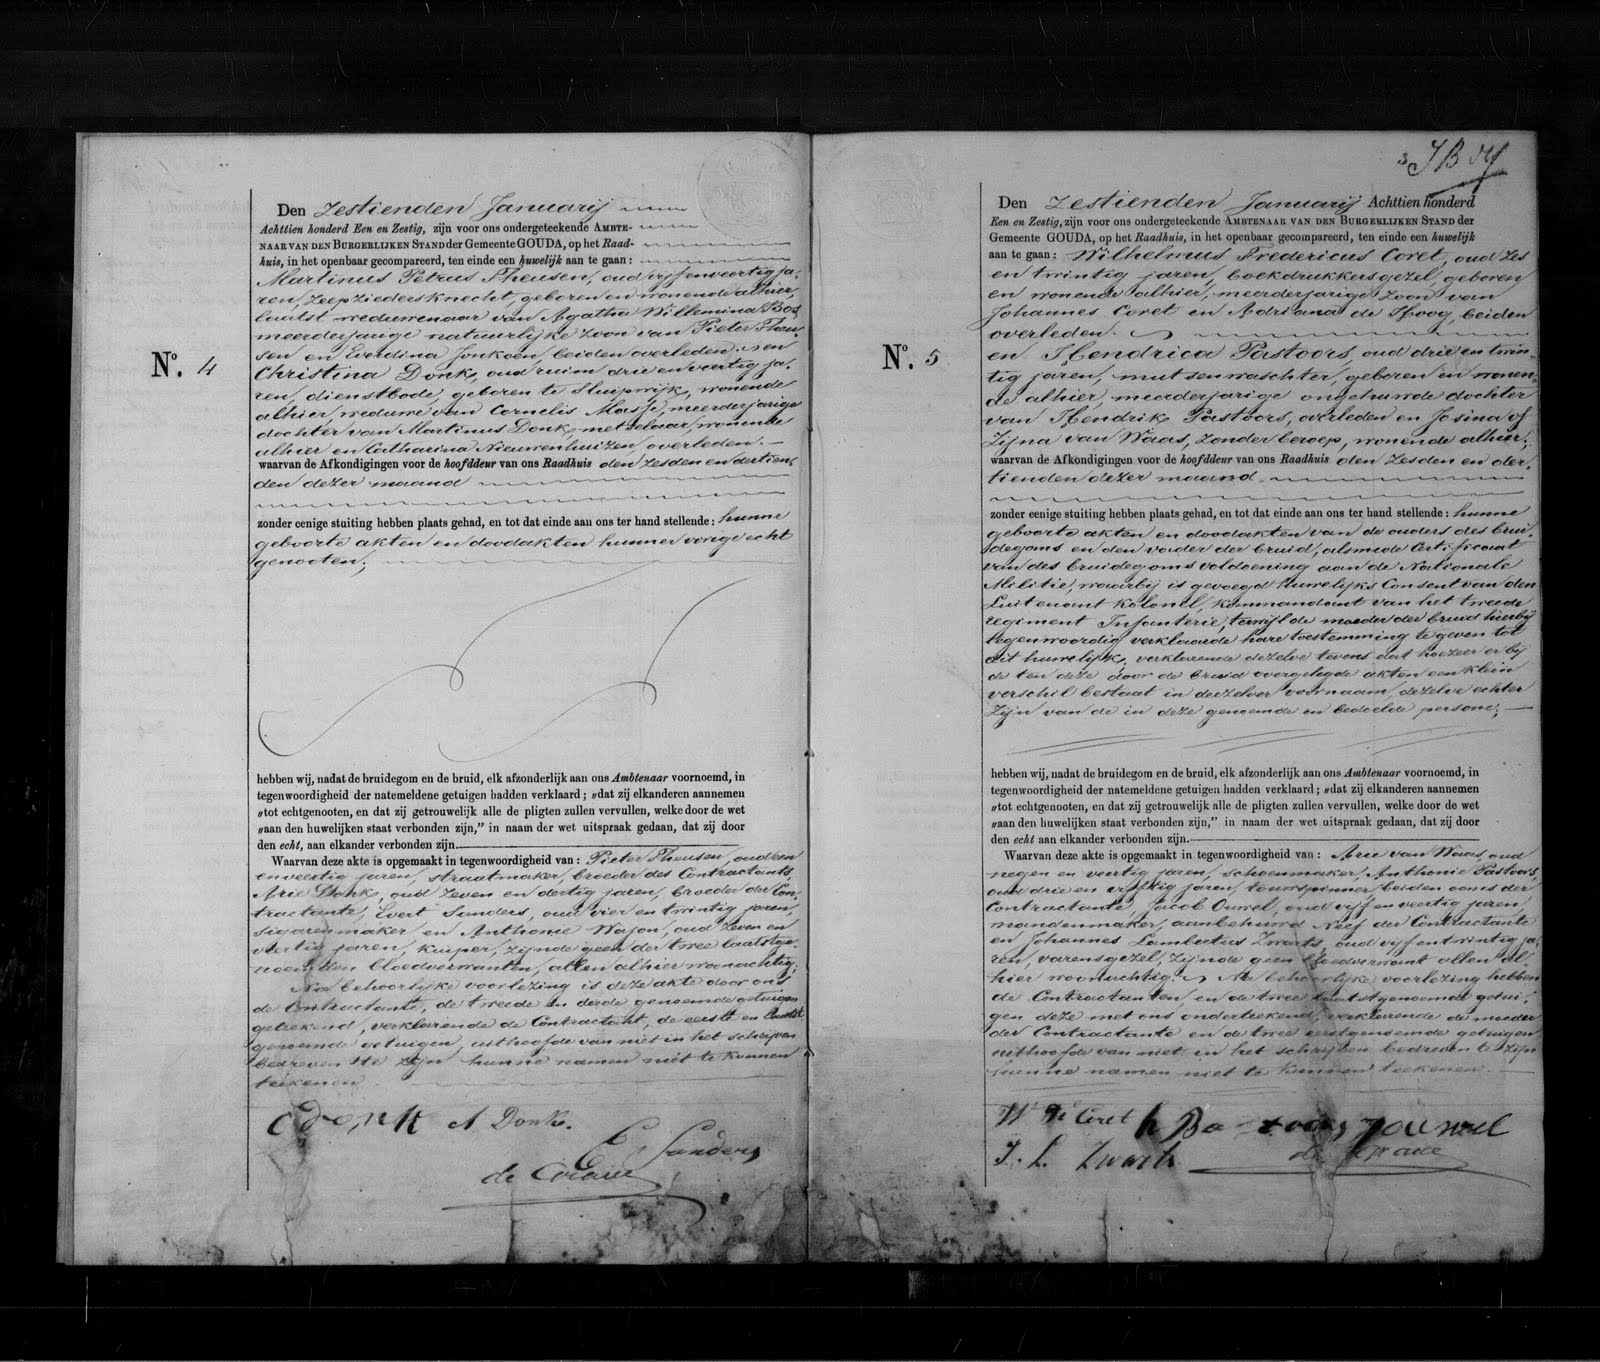 Den Zestienden Januarij
Achttien honderd Een en Zestig, zijn voor ons ondergeteekende AMBTE-
NAAR VAN DEN BURGERLIJKEN STAND der Gemeente GOUDA, op het Raad-
huis, in het openbaar gecompareerd, ten einde een huwelijk aan te gaan:
Martinus Petrus Theusen, oud vijfenveertig ja-
ren, zeepziedersknecht, geboren en wonende alhier,
laatst weduwenaar van Agatha Willemina Bos
meerderjarige natuurlijke zoon van Pieter Theu-
sen en Everdina Jonkoen, beiden overleden en
No. 4
Christina Donk, oud ruim drie en veertig ja-
ren, dienstbode, geboren te Sluipwijk, wonende
alhier, weduwe van Cornelis Masje, meerderjarige
dochter van Martinus Donk, metselaar, wonende
alhier en Catharina Nieuwenhuizen, overleden.
waarvan de Afkondigingen voor de hoofddeur van ons Raadhuis den zesden en dertien-
den dezer maand
zonder eenige stuiting hebben plaats gehad, en tot dat einde aan ons ter hand stellende: hunne
geboorte akten en doodakten hunner vorige echt
genooten;
hebben wij, nadat de bruidegom en de bruid, elk afzonderlijk aan ons Ambtenaar voornoemd, in
tegenwoordigheid der natemeldene getuigen hadden verklaard; „dat zij elkanderen aannemen
„tot echtgenooten, en dat zij getrouwelijk alle de pligten zullen vervullen, welke door de wet
„aan den huwelijken staat verbonden zijn,” in naam der wet uitspraak gedaan, dat zij door
den echt, aan elkander verbonden zijn.
Waarvan deze akte is opgemaakt in tegenwoordigheid van: Pieter Theusen, oud een
en veertig jaren, straatmaker, broeder des Contractants,
Arie Donk, oud zeven en dertig jaren, broeder der Con-
tractante, Evert Sanders, oud vier en twintig jaren,
sigarenmaker en Anthonie Wajon, oud zeven en
veertig jaren, kuiper, zijnde geen der twee laatstge-
noemden bloedverwanten, allen alhier woonachtig;
Na behoorlijke voorlezing is deze akte door ons
de Contractante, de tweede en derde genoemde getuigen
geteekend, verklarende de Contractant, de eerste en laatst
genoemde getuigen, uithoofde van niet in het schrijven
bedreven te zijn hunne namen niet te kunnen
teekenen
C Donk A Donk.
E Sanders
de Graue
3
Den Zestienden Januarij Achttien honderd
Een en Zestig, zijn voor ons ondergeteekende AMBTENAAR VAN DEN BURGERLIJKEN STAND der
Gemeente GOUDA, op het Raadhuis, in het openbaar gecompareerd, ten einde een huwelijk
aan te gaan: Wilhelmus Fredericus Coret, oud zes
en twintig jaren, boekdrukkersgezel, geboren
en wonende alhier, meerderjarige zoon van
Johannes Coret en Adriana de Hoog, beiden
overleden.
No. 5
en Hendrica Pastoors, oud drie en twin-
tig jaren, mutsenwaschter, geboren en wonen-
de alhier, meerderjarige ongehuwde dochter
van Hendrik Pastoors, overleden en Josina of
Zijna van Waas, zonder beroep, wonende alhier;
waarvan de Afkondigingen voor de hoofddeur van ons Raadhuis den zesden en der-
tienden dezer maand.
zonder eenige stuiting hebben plaats gehad, en tot dat einde aan ons ter hand stellende: hunne
geboorte akten en doodakten van de ouders des brui-
degoms en den vader der bruid, alsmede Certificaat
van des bruidegoms voldoening aan de Nationale
Militie, waarbij is gevoegd huwelijks Consent van den
Luitenant Kolonel, kommandant van het tweede
regiment Infanterie, terwijl de moeder der bruid hierbij
tegenwoordig verklaarde hare toestemming te geven tot
dit huwelijk; verklarende dezelve tevens dat hoezeer er bij
de ten deze door de bruid overgelegde akten een klein
verschil bestaat in derzelver voornaam, dezelve echter
zijn van de in deze genoemde en bedoelde persone;
hebben wij, nadat de bruidegom en de bruid, elk afzonderlijk aan ons Ambtenaar voornoemd, in
tegenwoordigheid der natemeldene getuigen hadden verklaard; „dat zij elkanderen aannemen
„tot echtgenooten, en dat zij getrouwelijk alle de pligten zullen vervullen, welke door de wet
„aan den huwelijken staat verbonden zijn,” in naam der wet uitspraak gedaan, dat zij door
den echt aan elkander verbonden zijn.
Waarvan deze akte is opgemaakt in tegenwoordigheid van: Arie van Waas, oud
negen en veertig jaren, schoenmaker, Anthonie Pastoors,
oud drie en vijftig jaren, touwspinner beiden ooms der
Contractante, Jacob Ouwel, oud vijf en veertig jaren,
mandenmaker, aanbehuwd Neef der Contractante
en Johannes Lambertus Zwarts, oud vijfentwintig ja-
ren, varensgezel, zijnde geen bloedverwant allen al-
hier woonachtig. Na behoorlijke voorlezing hebben
de Contractanten en de twee laatstgenoemde getui-
gen deze met ons onderteekend, verklarende de moeder
der Contractante en de twee eerstgenoemde getuigen
uithoofde van niet in het schrijven bedreven te zijn
hunne namen niet te kunnen teekenen.
W F Coret h Pastoors J ouwel
J. L. Zwarts de Graue